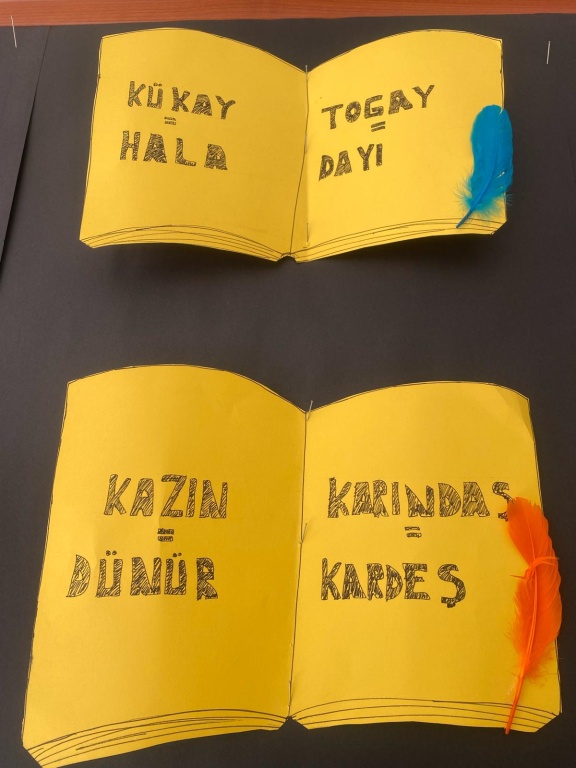 KÜKAY
=
HALA
TOGAY
=
DAYI
KAZIN
=
DÜNÜR
KARINDAŞ
=
KARDEŞ